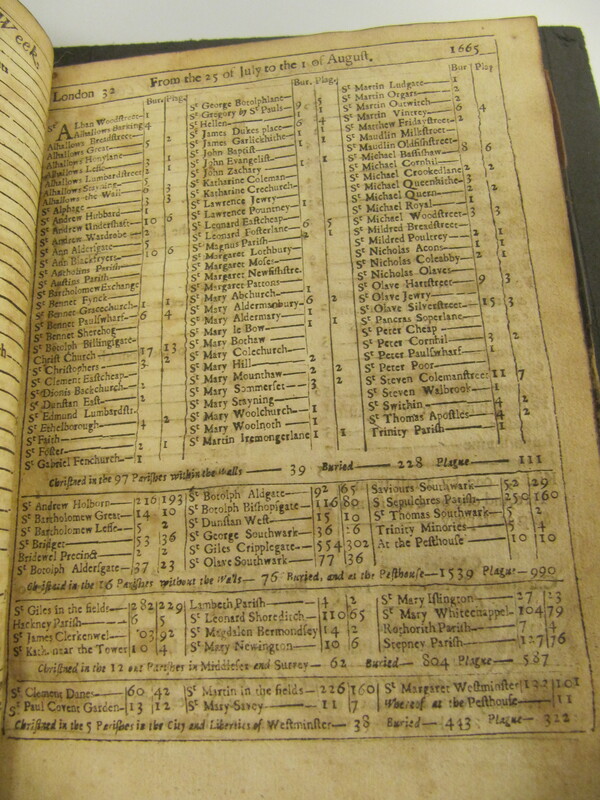 Week.
London 32 From the 25 of July to the 1 of August. 1665
Bur. Plag.
St Alban Woodstreet 1
Alhallows Barking 4
Alhallows Breadstreet
Alhallows Great 5 2
Alhallows Honylane
Alhallows Lesse
Alhallows Lumbardstreet
Alhallows Stayning
Alhallows the Wall
St Alphage
St Andrew Hubbard 1
St Andrew Undershaft 10 6
St Andrew Wardrobe
St Ann Aldersgate 5
St Ann Blackfryers 10 6
St Antholins Parish
St Austins Parish
St Bartholomew Exchange
St Bennet Fynck
St Bennet Gracechurch 1 1
St Bennet Paulswharf 6 4
St Bennet Sherehog
St Botolph Billingsgate
Christ Church 17 13
St Christophers 3 2
St Clement Eastcheap
St Dionis Backchurch 2
St Dunstan East 2
St Edmund Lumbardstr.
St Ethelborough 4 2
St Faith
St Foster 2 1
St Gabriel Fenchurch 1 1
Bur. Plag.
St George Botolphlane
St Gregory by St Pauls 9 5
St Hellen
St James Dukes place 6 4
St James Garlickhithe 1 1
St John Baptist
St John Evangelist
St John Zachary
St Katharine Coleman
St Katharine Creechurch
St Lawrence Jewry
St Lawrence Pountney
St Leonard Eastcheap
St Leonard Fosterlane 6 5
St Magnus Parish
St Margaret Lothbury
St Margaret Moses
St Margaret Newfishstre.
St Margaret Pattons
St Mary Abchurch
St Mary Aldermanbury 6 2
St Mary Aldermary
St Mary le Bow
St Mary Bothaw
St Mary Colechurch
St Mary Hill 2
St Mary Mounthaw 2 2
St Mary Sommerset 3 2
St Mary Stayning
St Mary Woolchurch 1
St Mary Woolnoth
St Martin Iremongerlane 1 1
Bur Plag
St Martin Ludgate 1
St Martin Orgars
St Martin Outwitch
St Martin Vintrey 6 4
St Matthew Fridaystreet
St Maudlin Milkstreet
St Maudlin Oldfishstreet
St Michael Bassishaw 8 6
St Michael Cornhil
St Michael Crookedlane 2 2
St Michael Queenhithe
St Michael Quern
St Michael Royal
St Michael Woodstreet 3 3
St Mildred Breadstreet
St Mildred Poultrey
St Nicholas Acons
St Nicholas Coleabby
St Nicholas Olaves
St Olave Hartstreet 9 3
St Olave Jewry
St Olave Silverstreet 15 3
St Pancras Soperlane
St Peter Cheap
St Peter Cornhil 3 2
St Peter Paulswharf 1
St Peter Poor
St Steven Colemanstreet 11 7
St Steven Walbrook 1
St Swithin 4 2
St Thomas Apostles 4 2
Trinity Parish 1
Christned in the 97 Parishes within the Walls — 39 Buried — 228 Plague — 111
St Andrew Holborn 216 193
St Bartholomew Great 14 10
St Bartholomew Lesse 5 2
St Bridget 53 36
Bridewel Precinct 2 2
St Botolph Aldersgate 37 23
St Botolph Aldgate 92 65
St Botolph Bishopsgate 116 80
St Dunstan West 15 10
St George Southwark 36 16
St Giles Cripplegate 554 302
St Olave Southwark 77 36
Saviours Southwark 52 29
S. Sepulchres Parish 250 160
St Thomas Southwark 5 2
Trinity Minories 5 4
At the Pesthouse 10 10
Christned in the 16 Parishes without the Walls — 76 Buried, and at the Pesthouse — 1539 Plague — 990
St Giles in the fields 282 229
Hackney Parish 6 5
St James Clerkenwel 103 92
St Kath. near the Tower 10 4
Lambeth Parish 4 2
St Leonard Shoreditch 110 65
St Magdalen Bermondsey 14 2
St Mary Newington 10 6
St Mary Islington 27 23
St Mary Whitechappel 104 79
Rothorith Parish 7 4
Stepney Parish 127 76
Christned in the 12 out Parishes in Middlesex and Surrey — 62 Buried — 804 Plague — 587
St Clement Danes 60 42
St Paul Covent Garden 13 12
St Martin in the fields 226 160
St Mary Savoy 11 7
St Margaret Westminster 132 101
Whereof at the Pesthouse 11
Christned in the 5 Parishes in the City and Liberties of Westminster — 38 Buried — 443 Plague — 322